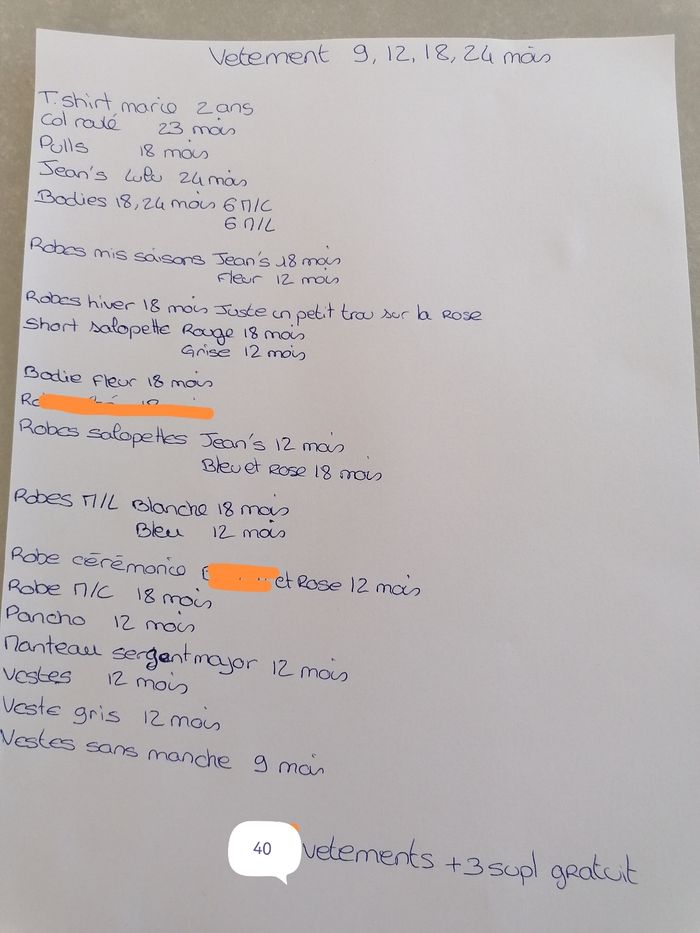 Vetement 9, 12, 18, 24 mois
T.shirt mario 2 ans
Col roulé 23 mois
Pulls 18 mois
Jean's Lulu 24 mois
Bodies 18, 24 mois 6 M/C
6 M/L
Robes mis saisons Jean's 18 mois
Fleur 12 mois
Robes hiver 18 mois Juste un petit trou sur la Rose
Short salopette Rouge 18 mois
Grise 12 mois
Bodie Fleur 18 mois
Robes salopettes Jean's 12 mois
Bleu et Rose 18 mois
Robes M/L Blanche 18 mois
Bleu 12 mois
Robe cérémonie et Rose 12 mois
Robe M/C 18 mois
Poncho 12 mois
Manteau sergent major 12 mois
Vestes 12 mois
Veste gris 12 mois
Vestes sans manche 9 mois
40 vetements +3 supl gratuit